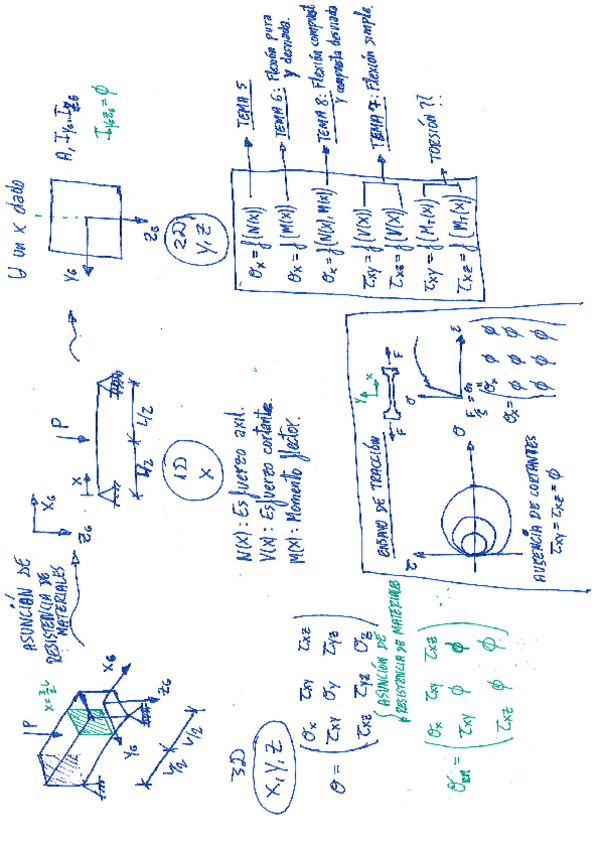 ASUNCIÓN DE
RESISTENCIA DE
MATERIALES
P
X_G
Y_G
Z_G
L/2
L/2
3D
X, Y, Z
σ = ( σx τxy τxz
τxy σy τyz
τxz τyz σz )
ASUNCIÓN DE
RESISTENCIA DE MATERIALES
σRM = ( σx τxy τxz
τxy φ φ
τxz φ φ )
X_G
Z_G
P
x
L/2
L/2
1D
X
N(x): Esfuerzo axil.
V(x): Esfuerzo cortante.
M(x): Momento flector.
ENSAYO DE TRACCIÓN
F
F
Y
x
σ
ε
τ
σ
σx = ( σx φ φ
φ φ φ
φ φ φ )
AUSENCIA DE CORTANTES
τxy = τxz = φ
∀ un x dado
Y_G
Z_G
2D
Y, Z
σx = f(N(x)) → TEMA 5
σx = f(M(x)) → TEMA 6: Flexión pura
y desviada.
σx = f(N(x), M(x)) → TEMA 8: Flexión compuesta
y compuesta desviada
τxy = f(V(x))
τxz = f(V(x)) → TEMA 7: Flexión simple.
τxy = f(MT(x))
τxz = f(MT(x)) → TORSIÓN ??